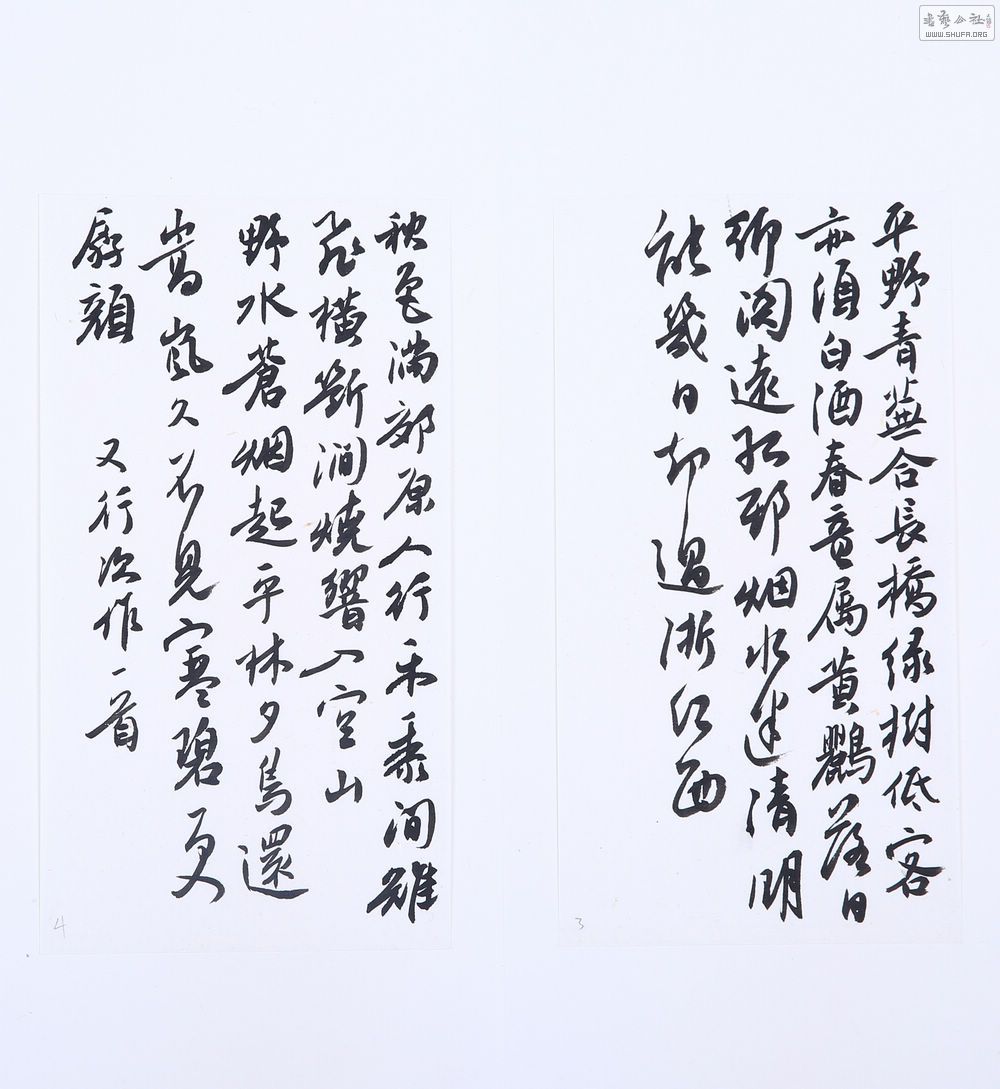 平野青蕪合長橋緑樹低客
衣須白酒春意属黄鸝落日
鄉関遠孤邨烟水迷清明
能幾日却過浙江西
3
秋色滿郊原人行禾黍間雉
飛橫斷澗燒響入空山
野水蒼烟起平林夕鳥還
嵩嵐久不見寒碧更
孱顔 又行次作一首
4
書藝公社
WWW.SHUFA.ORG